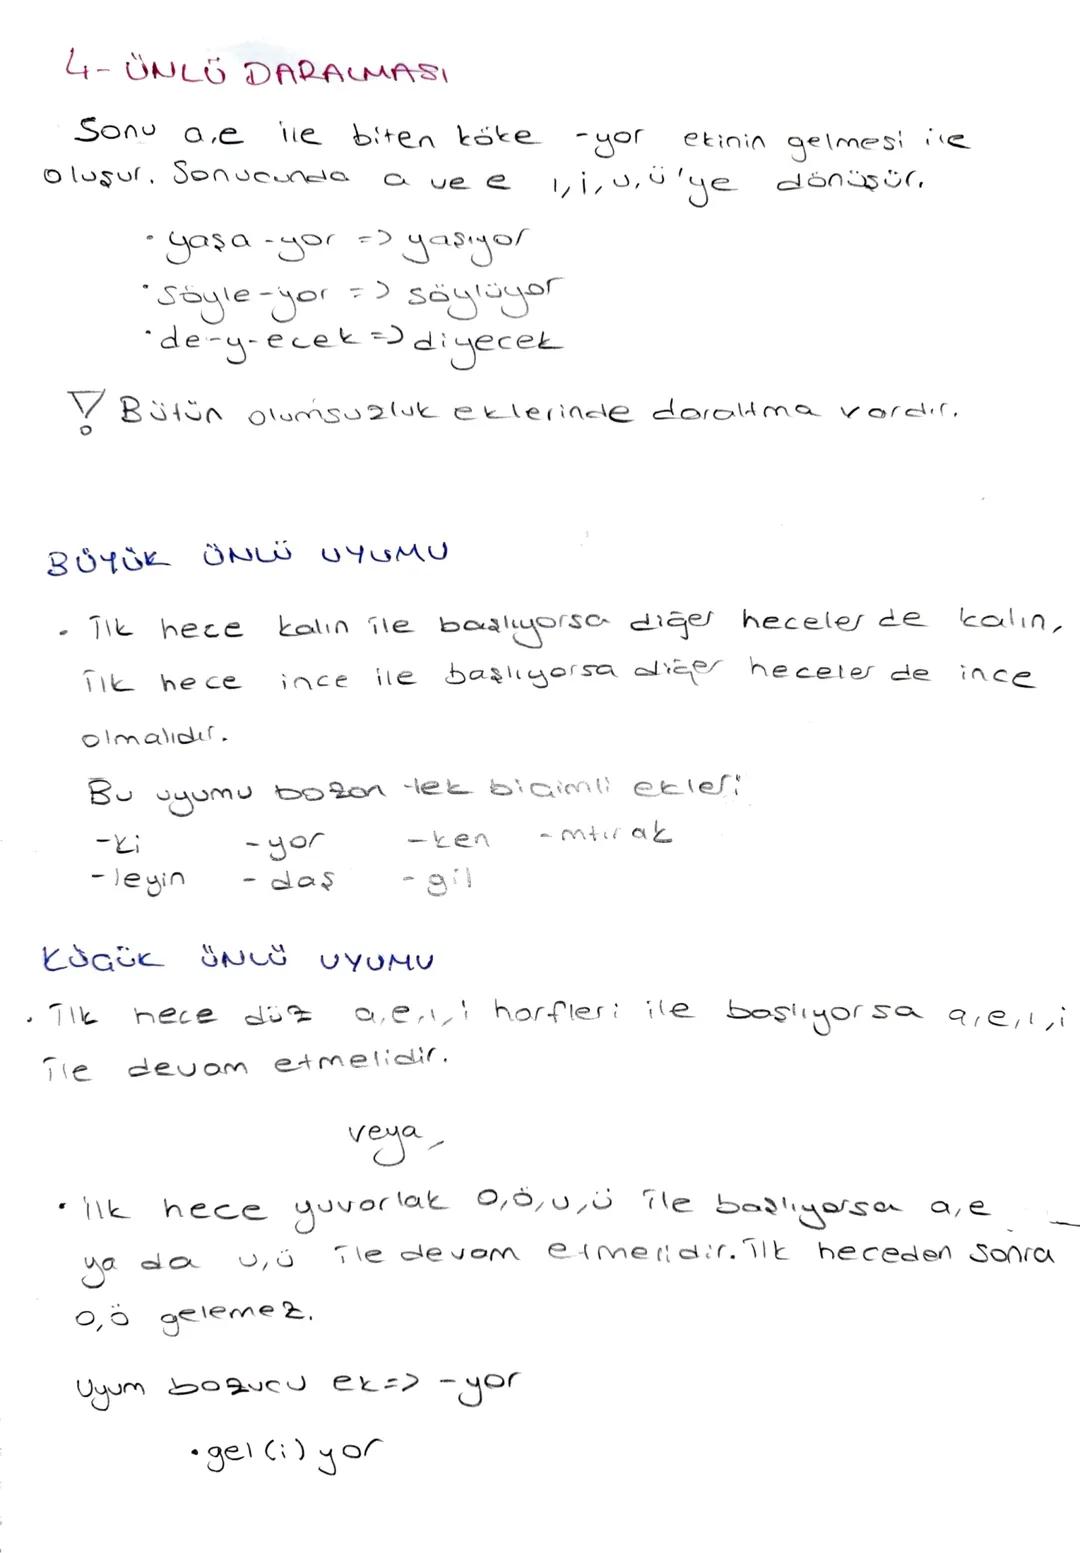 4- ÜNLÜ DARALMASI
Sonu a,e ile biten köke -yor ekinin gelmesi ile
oluşur. Sonucunda a ve e ı,i,u,ü'ye dönüşür.
• yaşa-yor => yaşıyor
• söyle-yor => söylüyor
• de-y-ecek => diyecek
! Bütün olumsuzluk eklerinde daraltma vardır.
BÜYÜK ÜNLÜ UYUMU
• İlk hece kalın ile başlıyorsa diğer heceler de kalın,
ilk hece ince ile başlıyorsa diğer heceler de ince
olmalıdır.
Bu uyumu bozan tek biçimli ekler:
-ki -yor -ken -mtırak
-leyin -daş -gil
KÜÇÜK ÜNLÜ UYUMU
• İlk hece düz a,e,ı,i harfleri ile başlıyorsa a,e,ı,i
ile devam etmelidir.
veya,
• ilk hece yuvarlak o,ö,u,ü ile başlıyorsa a,e
ya da u,ü ile devam etmelidir. İlk heceden sonra
o,ö gelemez.
Uyum bozucu ek => -yor
• gel(i)yor